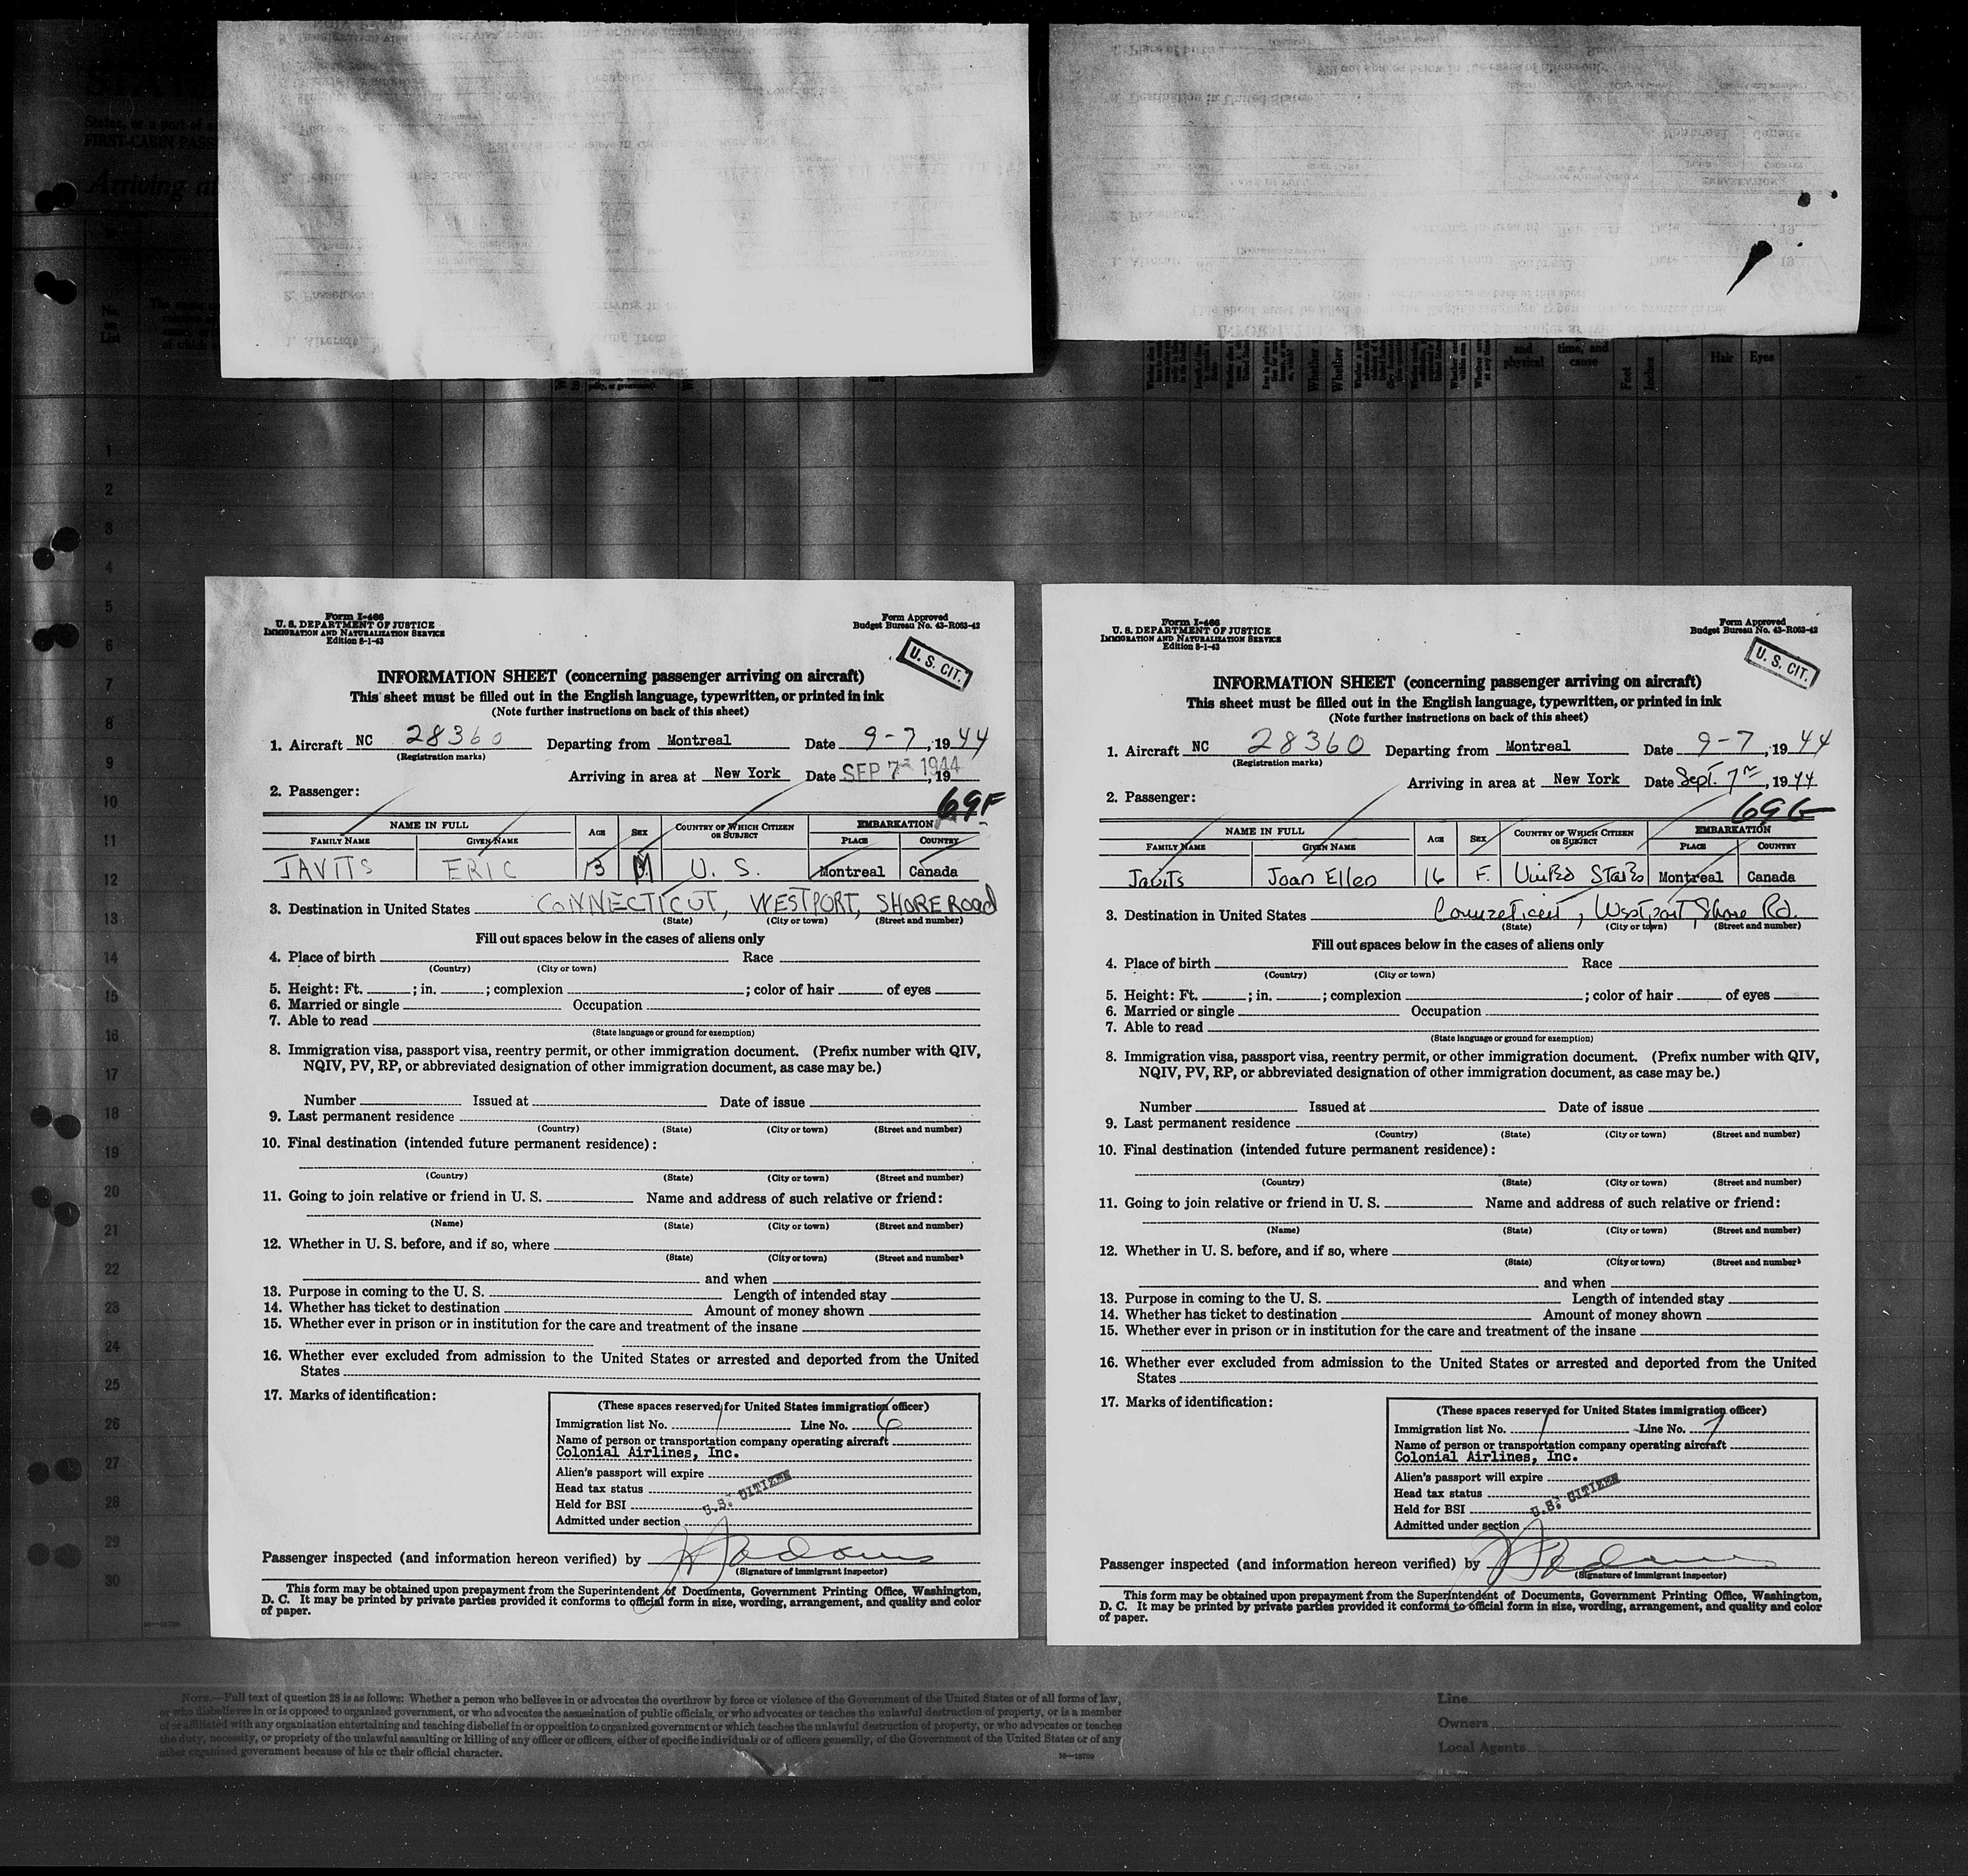 Form I-466
U. S. DEPARTMENT OF JUSTICE
IMMIGRATION AND NATURALIZATION SERVICE
Edition 8-1-43
Form Approved
Budget Bureau No. 43-R063-42
U. S. CIT.
INFORMATION SHEET (concerning passenger arriving on aircraft)
This sheet must be filled out in the English language, typewritten, or printed in ink
(Note further instructions on back of this sheet)
1. Aircraft NC 28360 Departing from Montreal Date 9-7, 1944
(Registration marks)
Arriving in area at New York Date SEP 7 1944, 19
2. Passenger:
69F
NAME IN FULL AGE SEX COUNTRY OF WHICH CITIZEN OR SUBJECT EMBARKATION
FAMILY NAME GIVEN NAME PLACE COUNTRY
JAVITS ERIC 13 M U. S. Montreal Canada
3. Destination in United States CONNECTICUT, WESTPORT, SHORE ROAD
(State) (City or town) (Street and number)
Fill out spaces below in the cases of aliens only
4. Place of birth Race
(Country) (City or town)
5. Height: Ft. ; in. ; complexion ; color of hair of eyes
6. Married or single Occupation
7. Able to read
(State language or ground for exemption)
8. Immigration visa, passport visa, reentry permit, or other immigration document. (Prefix number with QIV,
NQIV, PV, RP, or abbreviated designation of other immigration document, as case may be.)
Number Issued at Date of issue
9. Last permanent residence
(Country) (State) (City or town) (Street and number)
10. Final destination (intended future permanent residence):
(Country) (State) (City or town) (Street and number)
11. Going to join relative or friend in U. S. Name and address of such relative or friend:
(Name) (State) (City or town) (Street and number)
12. Whether in U. S. before, and if so, where
(State) (City or town) (Street and number)
and when
13. Purpose in coming to the U. S. Length of intended stay
14. Whether has ticket to destination Amount of money shown
15. Whether ever in prison or in institution for the care and treatment of the insane
16. Whether ever excluded from admission to the United States or arrested and deported from the United
States
17. Marks of identification:
(These spaces reserved for United States immigration officer)
Immigration list No. 1 Line No. 6
Name of person or transportation company operating aircraft
Colonial Airlines, Inc.
Alien's passport will expire
Head tax status
Held for BSI
U.S. CITIZEN
Admitted under section
Passenger inspected (and information hereon verified) by
(Signature of immigrant inspector)
This form may be obtained upon prepayment from the Superintendent of Documents, Government Printing Office, Washington,
D. C. It may be printed by private parties provided it conforms to official form in size, wording, arrangement, and quality and color
of paper.
Form I-466
U. S. DEPARTMENT OF JUSTICE
IMMIGRATION AND NATURALIZATION SERVICE
Edition 8-1-43
Form Approved
Budget Bureau No. 43-R063-42
U. S. CIT.
INFORMATION SHEET (concerning passenger arriving on aircraft)
This sheet must be filled out in the English language, typewritten, or printed in ink
(Note further instructions on back of this sheet)
1. Aircraft NC 28360 Departing from Montreal Date 9-7, 1944
(Registration marks)
Arriving in area at New York Date Sept. 7, 1944
2. Passenger:
69G
NAME IN FULL AGE SEX COUNTRY OF WHICH CITIZEN OR SUBJECT EMBARKATION
FAMILY NAME GIVEN NAME PLACE COUNTRY
Javits Joan Ellen 16 F. United States Montreal Canada
3. Destination in United States Connecticut, Westport, Shore Rd.
(State) (City or town) (Street and number)
Fill out spaces below in the cases of aliens only
4. Place of birth Race
(Country) (City or town)
5. Height: Ft. ; in. ; complexion ; color of hair of eyes
6. Married or single Occupation
7. Able to read
(State language or ground for exemption)
8. Immigration visa, passport visa, reentry permit, or other immigration document. (Prefix number with QIV,
NQIV, PV, RP, or abbreviated designation of other immigration document, as case may be.)
Number Issued at Date of issue
9. Last permanent residence
(Country) (State) (City or town) (Street and number)
10. Final destination (intended future permanent residence):
(Country) (State) (City or town) (Street and number)
11. Going to join relative or friend in U. S. Name and address of such relative or friend:
(Name) (State) (City or town) (Street and number)
12. Whether in U. S. before, and if so, where
(State) (City or town) (Street and number)
and when
13. Purpose in coming to the U. S. Length of intended stay
14. Whether has ticket to destination Amount of money shown
15. Whether ever in prison or in institution for the care and treatment of the insane
16. Whether ever excluded from admission to the United States or arrested and deported from the United
States
17. Marks of identification:
(These spaces reserved for United States immigration officer)
Immigration list No. 1 Line No. 7
Name of person or transportation company operating aircraft
Colonial Airlines, Inc.
Alien's passport will expire
Head tax status
Held for BSI
U.S. CITIZEN
Admitted under section
Passenger inspected (and information hereon verified) by
(Signature of immigrant inspector)
This form may be obtained upon prepayment from the Superintendent of Documents, Government Printing Office, Washington,
D. C. It may be printed by private parties provided it conforms to official form in size, wording, arrangement, and quality and color
of paper.
NOTE.—Full text of question 28 is as follows: Whether a person who believes in or advocates the overthrow by force or violence of the Government of the United States or of all forms of law,
or who disbelieves in or is opposed to organized government, or who advocates the assassination of public officials, or who advocates or teaches the unlawful destruction of property, or is a member
of or affiliated with any organization entertaining and teaching disbelief in or opposition to organized government or which teaches the unlawful destruction of property, or who advocates or teaches
the duty, necessity, or propriety of the unlawful assaulting or killing of any officer or officers, either of specific individuals or of officers generally, of the Government of the United States or of any
other organized government because of his or their official character.
16—18709
Line
Owners
Local Agents